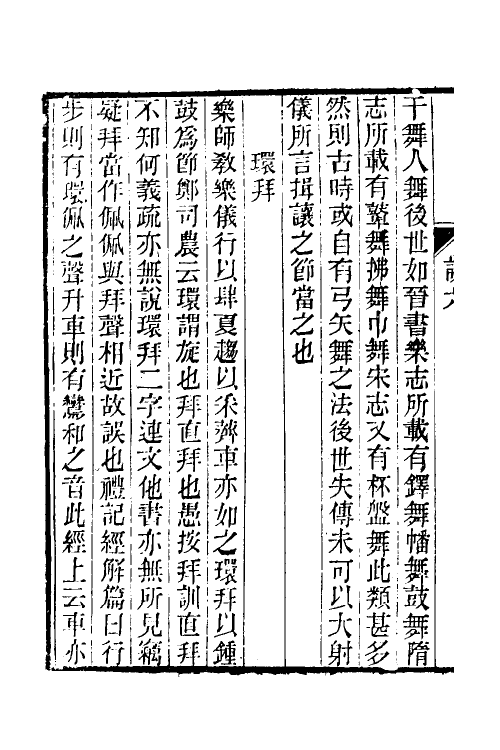 干舞人舞後世如晉書樂志所載有鐸舞幡舞鼓舞隋
志所載有鞞舞拂舞巾舞宋志又有杯盤舞此類甚多
然則古時或自有弓矢舞之法後世失傳未可以大射
儀所言揖讓之節當之也
環拜
樂師敎樂儀行以肆夏趨以采薺車亦如之環拜以鍾
鼓爲節鄭司農云環謂旋也拜直拜也愚按拜訓直拜
不知何義疏亦無說環拜二字連文他書亦無所見竊
疑拜當作佩佩與拜聲相近故誤也禮記經解篇曰行
步則有環佩之聲升車則有鸞和之音此經上云車亦